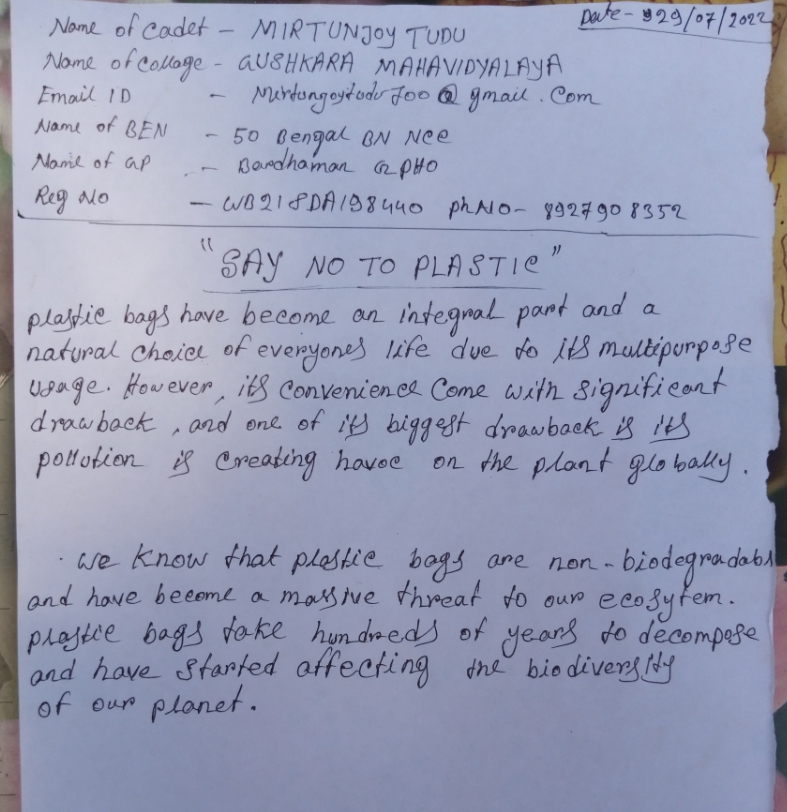 Date - 29/07/2022
Name of cadet - MIRTUNJOY TUDU
Name of collage - GUSHKARA MAHAVIDYALAYA
Email ID - Mirtunjoytudu700@gmail.com
Name of BEN - 50 Bengal BN Ncc
Name of GP - Bardhaman G2 PHO
Reg No - WB21SDA198440 phNO- 8927908352
"SAY NO TO PLASTIC"
plastic bags have become an integral part and a
natural choice of everyones life due to its multipurpose
usage. However, its convenience come with significant
drawback, and one of its biggest drawback is its
pollution is creating havoc on the plant globally.
we know that plastic bags are non-biodegradabl
and have become a massive threat to our ecosytem.
plastic bags take hundreds of years to decompose
and have started affecting the biodiversity
of our planet.